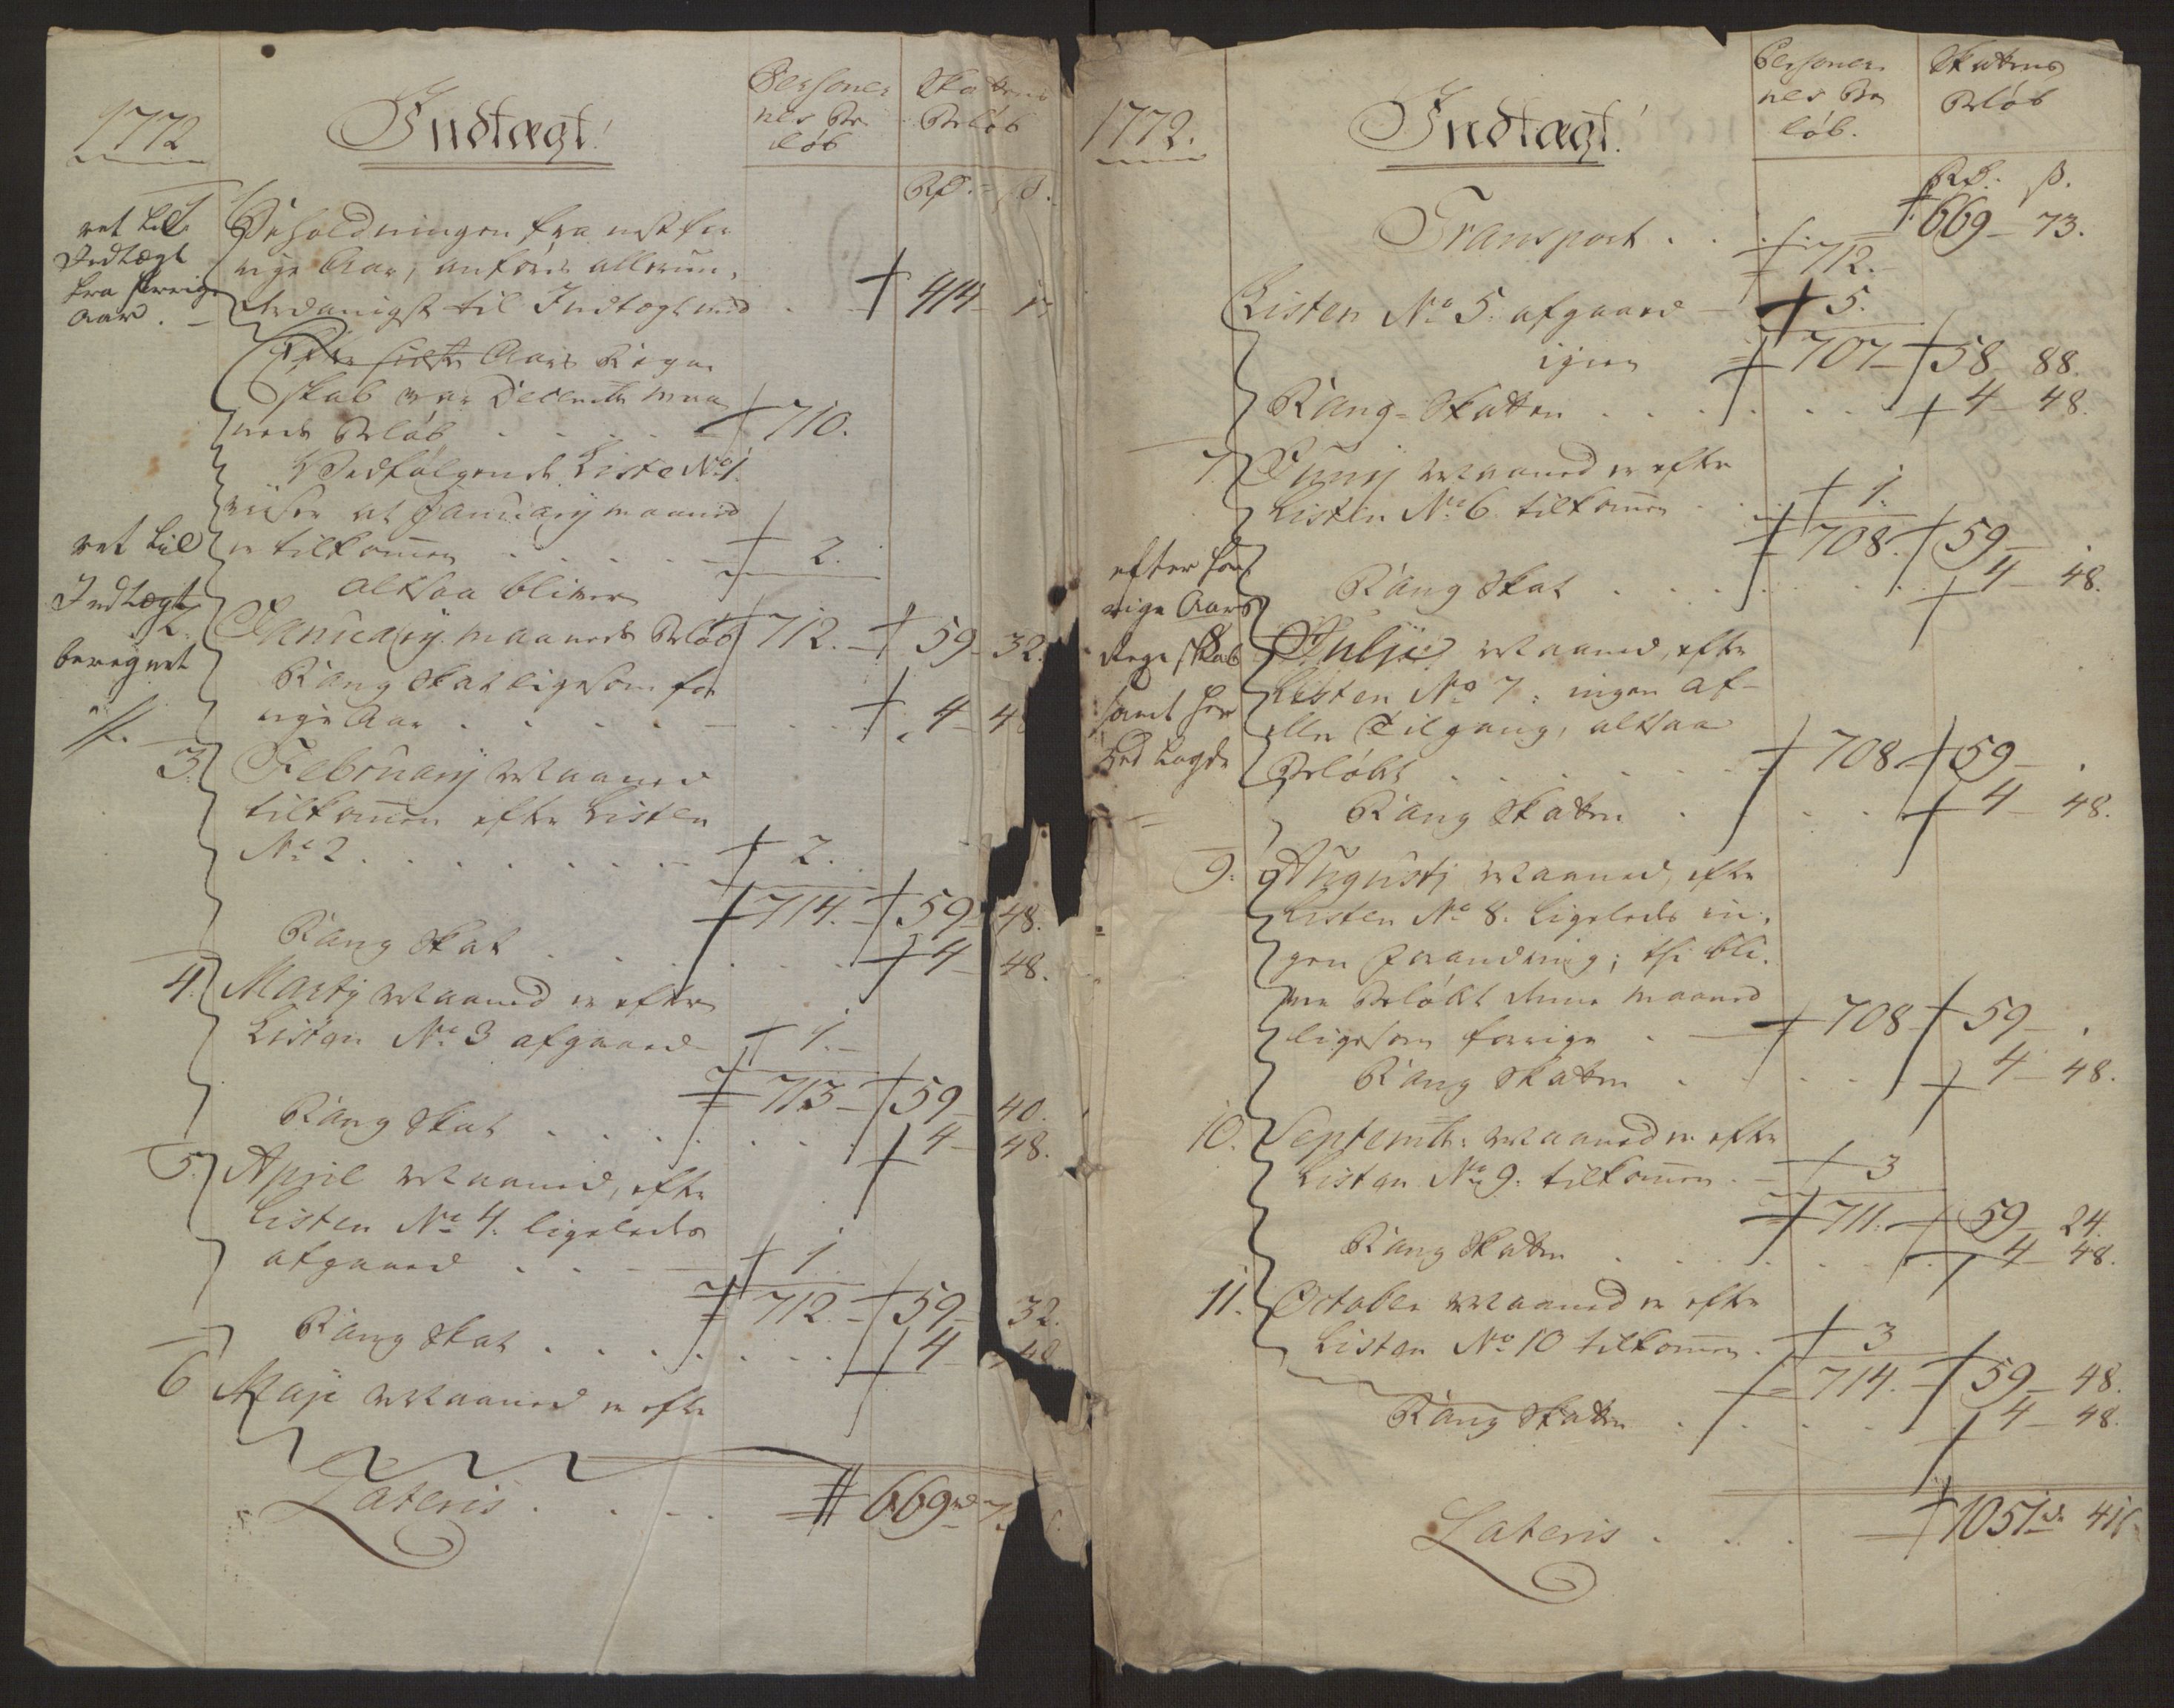 1772
Indtægt!
Personer
nes Be
løb
Skattens
Beløb
Rd. ß.
ret til
Indtægt
fra forrige
Aar.
1
Beholdningen fra nestfor
rige Aar, anføres allerun,
derdanigst til Indtægt med . . 414 - 17
Efter sidste Aars Regn
skab var Decembr maa
neds Beløb . . . . 710.
Vedfølgende Liste No 1.
viser at January maaned
er tilkommen . . . . 2.
altsaa bliver
ret til
Indtægt
beregnet
2.
January maaneds Beløb 712. - 59 - 32.
Rang Skat ligesom for
rige Aar . . . . . 4 - 48
3. February Maaned
tilkommen efter Listen
No 2 . . . . . . . 2.
714. - 59 - 48.
Rang Skat . . . . . 4 - 48.
4. Martij Maaned er efter
Listen No 3 afgaaed - 1. -
713 - 59 - 40.
Rang Skat . . . . . 4 - 48.
5. April Maaned, efter
Listen No 4. ligeleeds
afgaaed . . . 1
712. - 59 - 32.
Rang Skat . . . . . 4 - 48
6 Maji Maaned er efter
Lateris . . . . 669 rd 7
1772.
Indtægt!
Personer
nes Be
løb.
Skattens
Beløb
Rd. ß.
Transport . . . . 669 - 73.
712.
Listen No 5. afgaaed - 5.
igien 707 - 58 - 88.
Rang-Skatten . . . . . 4 - 48.
7. Junij Maaned er efter
Listen No 6. tilkommen . . 1.
708. 59 - .
Rang Skat . . . . . 4 - 48.
efter for
rige Aars
Regnskab
samt her
ved lagde
8
Julji Maaned, efter
Listen No 7. ingen af-
eller Tilgang, altsaa
Beløbet . . . . . 708 - 59 - .
Rang Skatten . . . . 4 - 48.
9. Augustj Maaned, efter
Listen No 8. Ligeleeds in,
gen forandring; thi bli,
ver Beløbet denne maaned
ligesom forrige . - 708 - 59 - .
Rang Skatten . . . . 4 - 48.
10. Septembr: Maaned er efter
Listen No 9. tilkommen . - 3
711. - 59 - 24.
Rang Skatten . . . . . 4 - 48.
11. October Maaned er efter
Listen No 10 tilkommen . 3
714. - 59 - 48.
Rang Skatten . . . . . 4 - 48.
Lateris . . . . 1051 rd 41